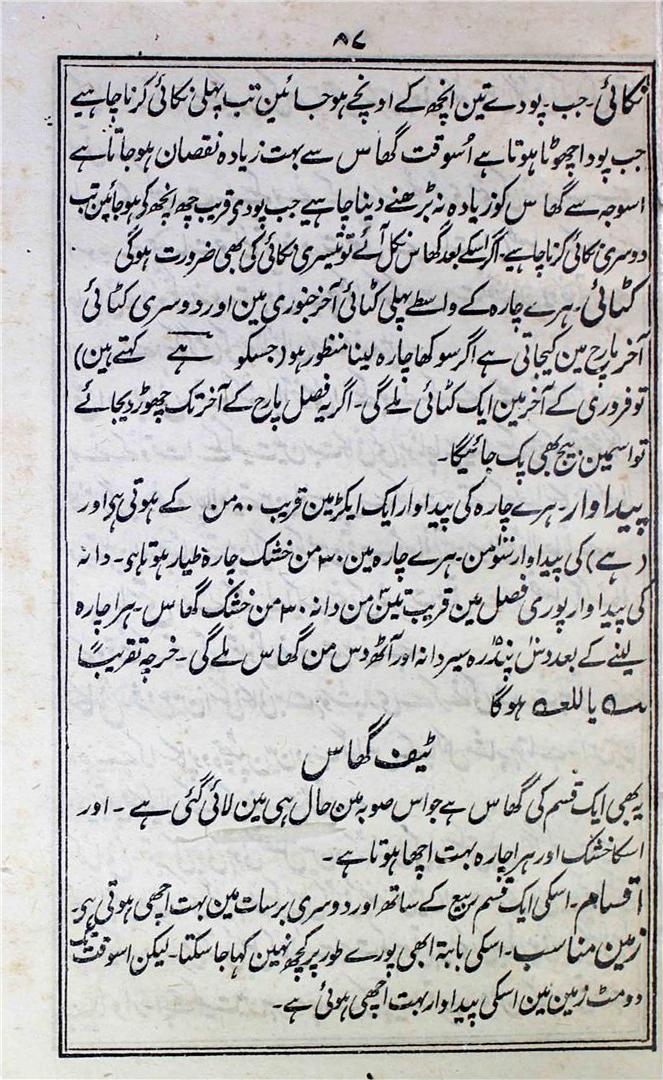 ۸۷
نکائی۔ جب۔ پودے تین انچھ کے اونچے ہو جائین تب پہلی نکائی کرنا چاہیے
جب پودا چھوٹا ہوتا ہے اُسوقت گھاس سے بہت زیادہ نقصان ہو جاتا ہے
اسوجہ سے گھاس کو زیادہ نہ بڑھنے دینا چاہیے جب پودی قریب چھ انچھ کی ہو جائین تب
دوسری نکائی کرنا چاہیے۔ اگر اسکے بعد گھاس نکل آئے تو تیسری نکائی کی بھی ضرورت ہوگی
کٹائی۔ ہرے چارہ کے واسطے پہلی کٹائی آخر جنوری مین اور دوسری کٹائی
آخر مارچ مین کیجاتی ہے اگر سوکھا چارہ لینا منظور ہو (جسکو ہے کہتے ہین)
تو فروری کے آخر مین ایک کٹائی ملے گی۔ اگر یہ فصل مارچ کے آخر تک چھوڑ دیجائے
تو اسمین بیج بھی پک جائیگا۔
پیداوار۔ ہرے چارہ کی پیداوار ایک ایکڑ مین قریب ۸۰ من کے ہوتی ہی اور
(ہے) کی پیداوار سَو من۔ ہرے چارہ مین ۳۰ من خشک چارہ طیار ہوتا ہی۔ دانہ
کی پیداوار پوری فصل مین قریب تین من دانہ ۳۰ من خشک گھاس۔ ہرا چارہ
لینے کے بعد دس پندرہ سیر دانہ اور آٹھ دس من گھاس ملے گی۔ خرچہ تقریباً
یا ہوگا
ٹیف گھاس
یہ بھی ایک قسم کی گھاس ہے جو اس صوبہ مین حال ہی مین لائی گئی ہے۔ اور
اسکا خشک اور ہرا چارہ بہت اچھا ہوتا ہے۔
اقسام۔ اسکی ایک قسم ربیع کے ساتھ اور دوسری برسات مین بہت اچھی ہوتی ہی۔
زمین مناسب۔ اسکی بابتہ ابھی پورے طور پر کچھ نہین کہا جا سکتا۔ لیکن اسوقت تک
دومٹ زمین مین اسکی پیداوار بہت اچھی ہوئی ہے۔